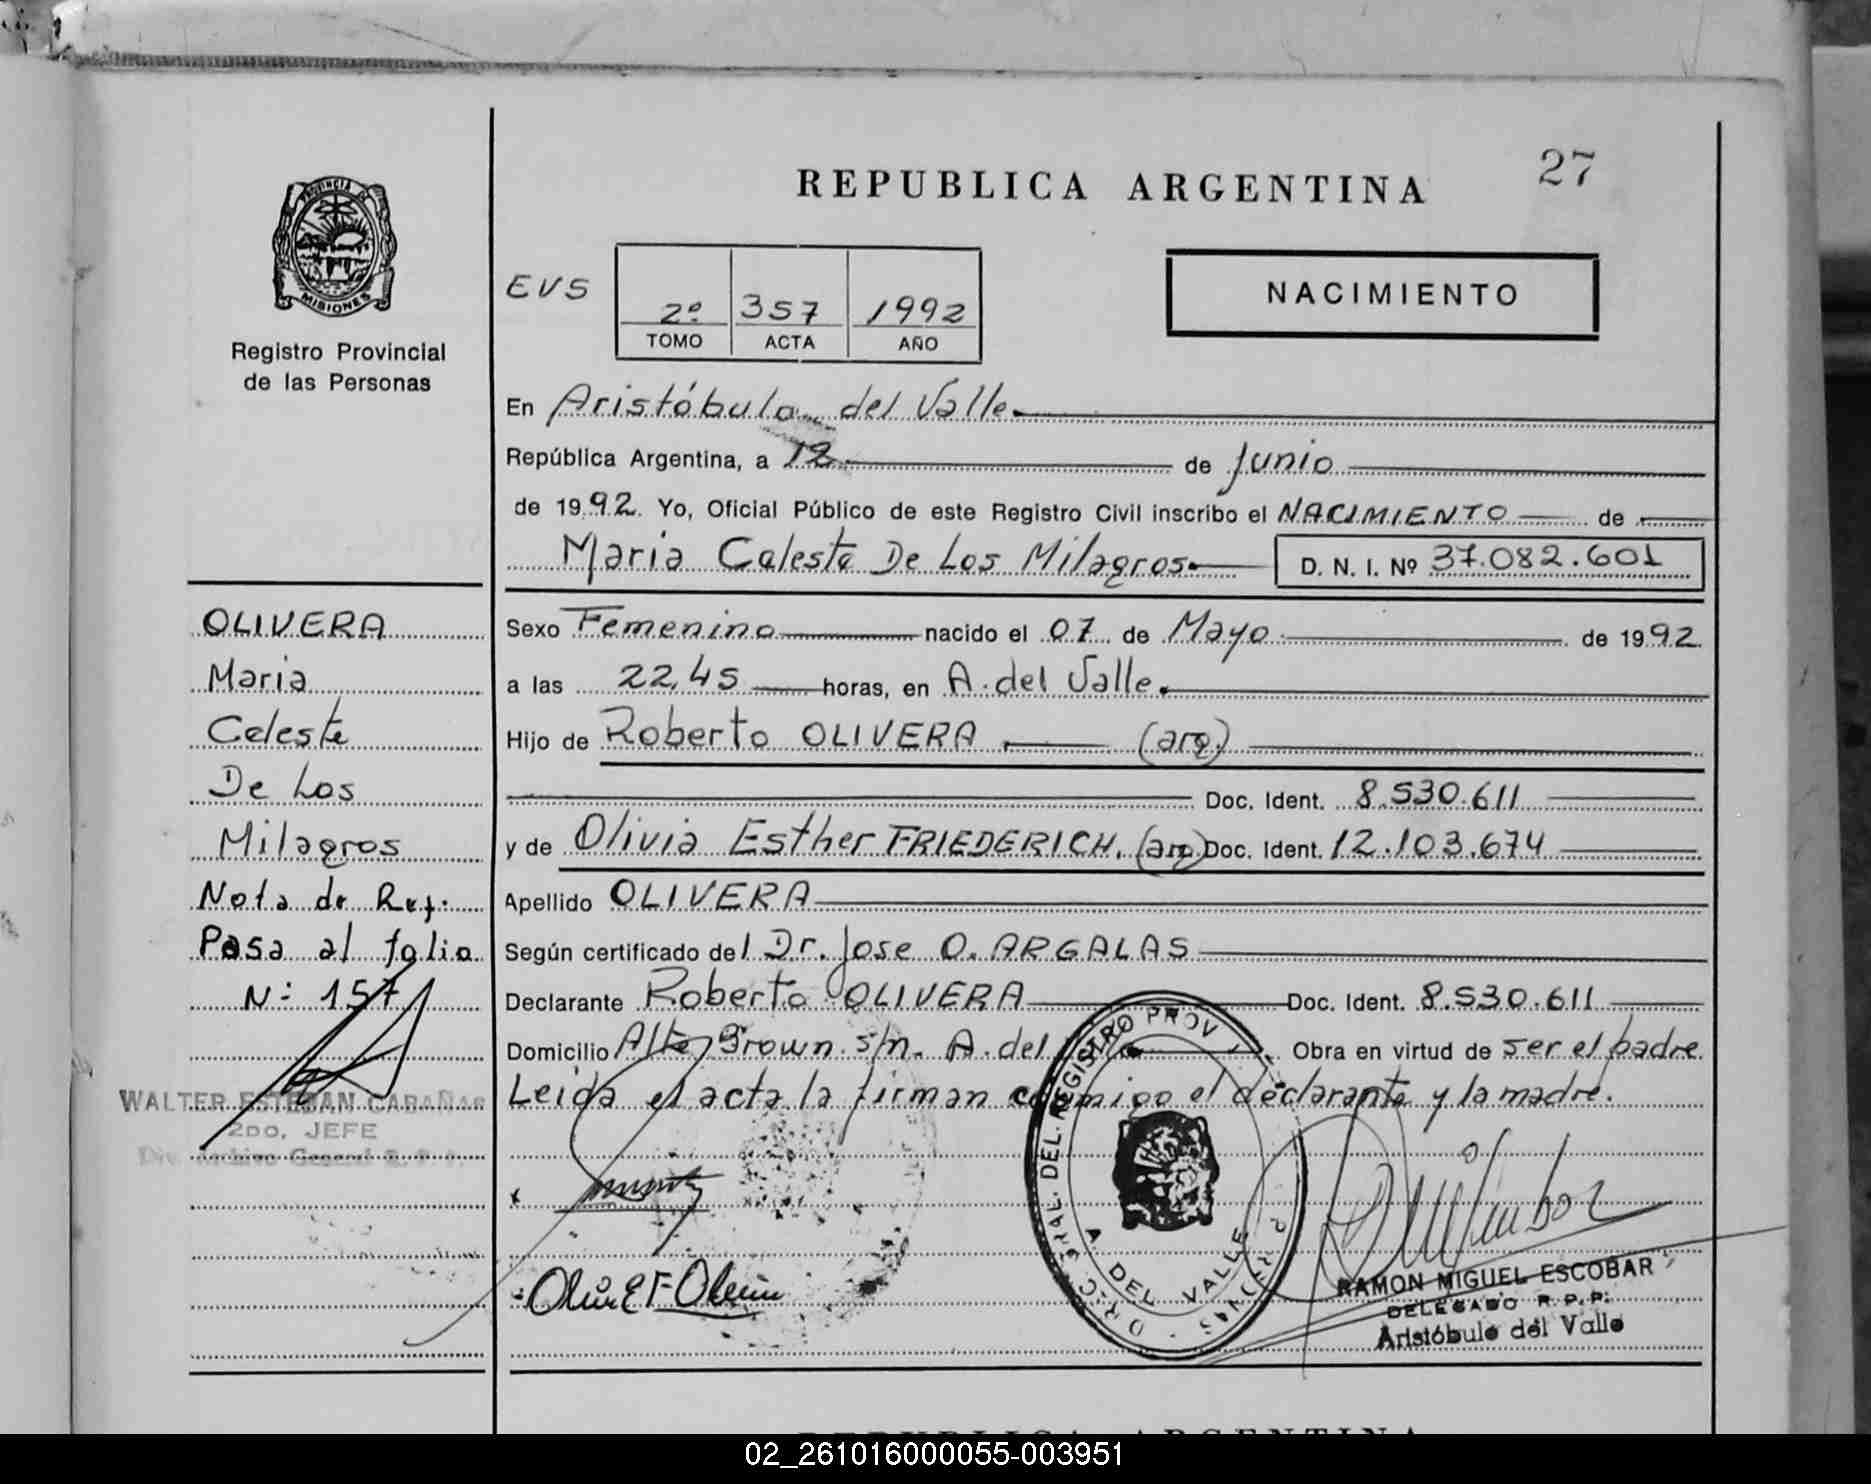 27
REPUBLICA ARGENTINA
PROVINCIA DE
MISIONES
Registro Provincial
de las Personas
EVS
2º 357 1992
TOMO ACTA AÑO
NACIMIENTO
En Aristóbulo del Valle
República Argentina, a 12 de Junio
de 1992. Yo, Oficial Público de este Registro Civil inscribo el NACIMIENTO de
Maria Celeste De Los Milagros D. N. I. Nº 37.082.601
Sexo Femenino nacido el 07 de Mayo de 1992
a las 22,45 horas, en A. del Valle.
Hijo de Roberto OLIVERA (arg.)
Doc. Ident. 8.530.611
y de Olivia Esther FRIEDERICH. (arg) Doc. Ident. 12.103.674
Apellido OLIVERA
Según certificado del Dr. Jose O. ARGALAS
Declarante Roberto OLIVERA Doc. Ident. 8.530.611
Domicilio Alte Brown s/n. A. del Obra en virtud de ser el padre
Leida el acta la firman conmigo el declarante y la madre.
OLIVERA
Maria
Celeste
De Los
Milagros
Nota de Ref.
Pasa al folio
Nº 157
WALTER ESTEBAN CABAÑAS
2DO. JEFE
Div. Archivo General R. P. P.
x
DIREC. GRAL. DEL REGISTRO PROV. DE LAS PERSONAS
A. DEL VALLE
RAMON MIGUEL ESCOBAR
DELEGADO R.P.P.
Aristóbulo del Valle
REPUBLICA ARGENTINA
02_261016000055-003951